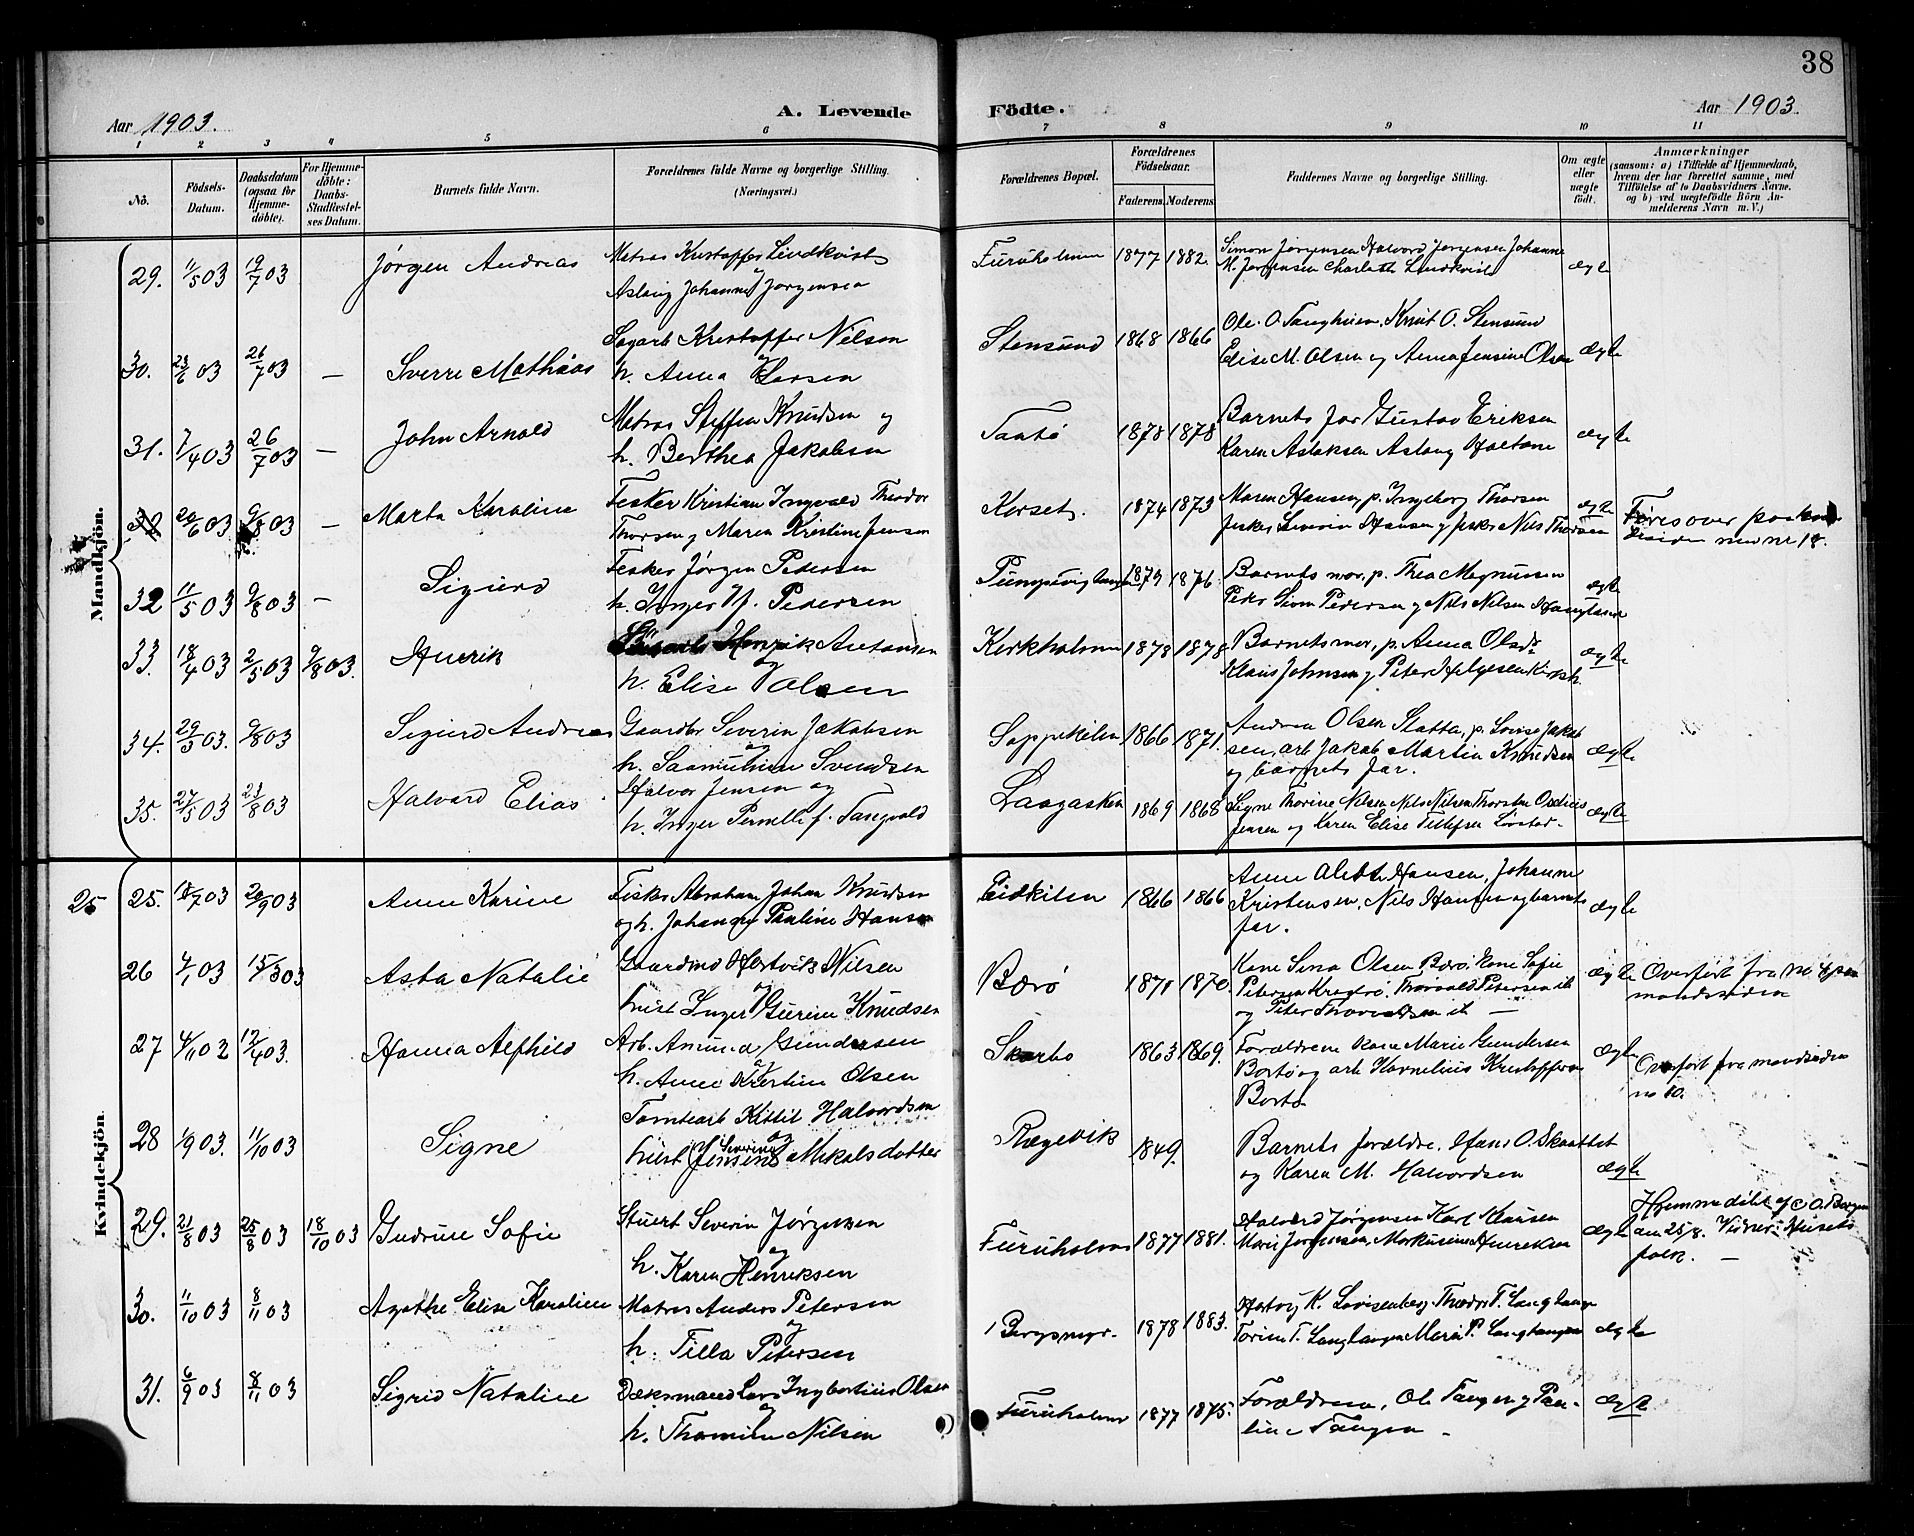 38
Aar 1903.
A. Levende
Födte.
Aar 1903.
1 2 3 4 5 6 7 8 9 10 11
No.
Födsels-
Datum.
Daabsdatum
(ogsaa for
Hjemme-
döbte).
For Hjemme-
döbte:
Daabs-
Stadfæstel-
ses Datum.
Barnets fulde Navn.
Forældrenes fulde Navne og borgerlige Stilling.
(Næringsvei.)
Forældrenes Bopæl.
Forældrenes
Födselsaar.
Faderens Moderens
Faddernes Navne og borgerlige Stilling.
Om ægte
eller
uægte
födt.
Anmærkninger
(saasom: a) i Tilfælde af Hjemmedaab,
hvem der har forrettet samme, med
Tilföielse af to Daabsvidners Navne.
og b) ved uægtefödte Börn An-
melderens Navn m. V.)
Mandkjön.
29. 11/5 03 19/7 03 Jørgen Andreas Matros Kristoffer Lindkvist
Aslaug Johanne Jørgensen
Furuholmen 1877 1882 Simon Jørgensen Halvord Jørgensen Johanne
M. Jørgensen Charlotte Lindkvist ægte
30. 03 26/7 03 — Sverre Mathias Kristoffer Nilsen
og h. Anna Larsen
Stensund 1868 1866 Ole O. Knut O. Stensund
Elise M. Olsen og Anna Jensine Olsen ægte
31. 7/4 03 26/7 03 — John Arnold Matros Steffen Knudsen og
h. Berthea Jakobsen
1878 1878 Barnets far Gustav Eriksen
Karen Aslaksen Aslaug ægte
20/6 03 9/8 03 — Marta Karoline Fisker Kristian Ingvald Theodor
Thorsen og Maren Kristine Jensen
Korset 1874 1873 Maren Hansen, p. Ingeborg Thorsen
fisker Hansen og fisker Nils Thorsen ægte
Føres over paa
siden med nr 18.
32 11/5 03 9/8 03 — Sigurd Fisker Jørgen Pedersen
h. Inger H. Pedersen
1876 Barnets mor, p. Thea Magnussen
Pedersen og Nils Nilsen ægte
33. 18/4 03 2/5 03 9/8 03. Henrik Henrik Antonsen
og h. Elise Olsen
Kirkholmen 1878 1878 Barnets mor, p. Anna Olsdr
Klaus Johnsen og Peter Helgesen Kirkh. ægte
34. 29/3 03. 9/8 03 Sigurd Andreas Gaardbr Severin Jakobsen
og h. Svendsen
Soppekilen 1866 1871. Andrea Olsen Slatta, p. Lovise Jakob
sen, arb Jakob Martin Knudsen
og barnets far. ægte
35. 27/5 03 23/8 03 Halvard Elias Halvor Jensen og
h. Inger Pernelle f. Tangvald
1869 1868 Signe Thorine Nilsen Nils Nilsen
Jensen og Karen Elise Tellefsen ægte
Kvindekjön.
25 25. 18/7 03 20/9 03 Anne Karine Fisker Abraham Johan Knudsen
og h. Johanne Pauline Hansen
Eidkilen 1866 1866 Anne Hansen, Johanne
Kristensen, Nils Hansen og barnets
far. ægte
26 4/1 03 15/3 03 Asta Natalie Gaardmd Hartvik Nilsen
og hust Inger Gurine Knudsen
Barø 1871 1870. Kone Sina Olsen Barø. kone Sofie
Petersen Kragerø. Thorvald Petersen
og Peter —
ægte Overført fra no paa
mandssiden
27 4/11 02 12/4 03. Hanna Alfhild Arb. Amund Gundersen
og h. Anne Kirstine Olsen
Skarbo 1863 1869. Forældrene Kone Marie Gundersen
Bortø og arb Kornelius Kristoffersen
Bortø ægte Overført fra mandssiden
no 10.
28 1/9 03. 11/10 03 Signe Tomtearb Kittil Halvordsen
og hust Jensine Severine Mikalsdatter
Rægevik 1849. Barnets forældre. Hans O. Skaattet
og Karen M. Halvordsen ægte
29. 21/8 03 25/8 03 18/10 03 Gudrun Sofie Stuert Severin Jørgensen
og h. Karen Henriksen
Furuholmen 1877 1881. Halvord Jørgensen Karl Klausen
Marie Jørgensen, Markusine Henriksen ægte
Hjemmedøbt af C. O. Bergan
den 25/8. Vidner: Husets
folk. —
30. 11/10 03 8/11 03 Agathe Elise Karoline Matros Anders Petersen
og h. Tilla Petersen
Bergsmyr. 1878 1883. K. Lovisenberg T. Langtangen
Torine T. Langtangen Marie P. Langtangen ægte
31. 6/9 03 8/11 03 Sigrid Nataline Dæksmand Lars Ingbertius Olsen
og h. Thomine Nilsen
Furuholmen 1877 1875. Forældrene, Ole Tangen og Pau-
line Tangen — ægte